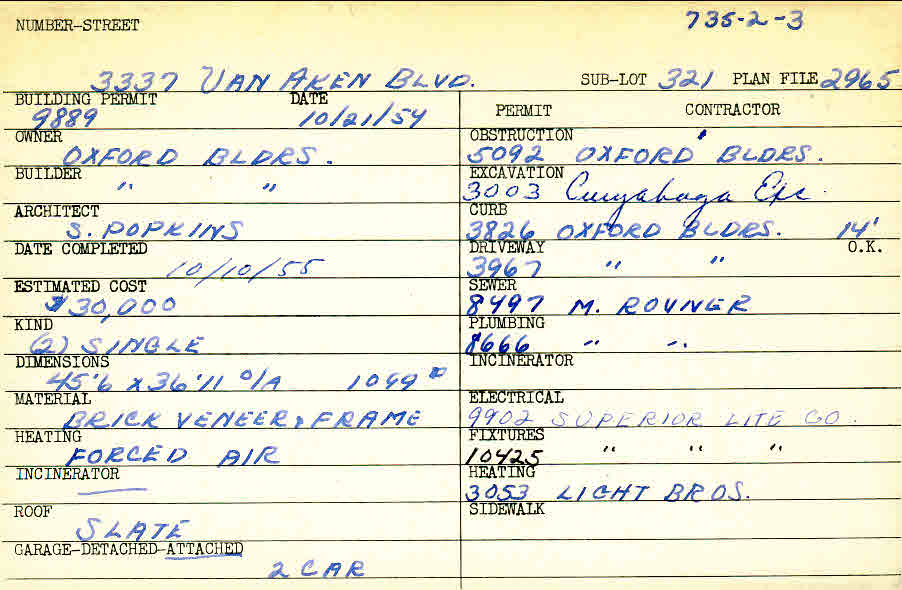 NUMBER-STREET 735-2-3
3337 VAN AKEN BLVD. SUB-LOT 321 PLAN FILE 2965
BUILDING PERMIT DATE
9889 10/21/54
PERMIT CONTRACTOR
OWNER
OXFORD BLDRS.
OBSTRUCTION
5092 OXFORD BLDRS.
BUILDER
" "
EXCAVATION
3003 Cuyahoga Exc.
ARCHITECT
S. POPKINS
CURB
3826 OXFORD BLDRS. 14'
DATE COMPLETED
10/10/55
DRIVEWAY O.K.
3967 " "
ESTIMATED COST
$30,000
SEWER
8497 M. ROVNER
KIND
(2) SINGLE
PLUMBING
8666 " "
DIMENSIONS
45'6 x 36'11 O/A
INCINERATOR
MATERIAL
BRICK VENEER & FRAME
ELECTRICAL
9902 SUPERIOR LITE CO.
HEATING
FORCED AIR
FIXTURES
10425 " " "
INCINERATOR
HEATING
3053 LIGHT BROS.
ROOF
SLATE
SIDEWALK
GARAGE-DETACHED-ATTACHED
2 CAR